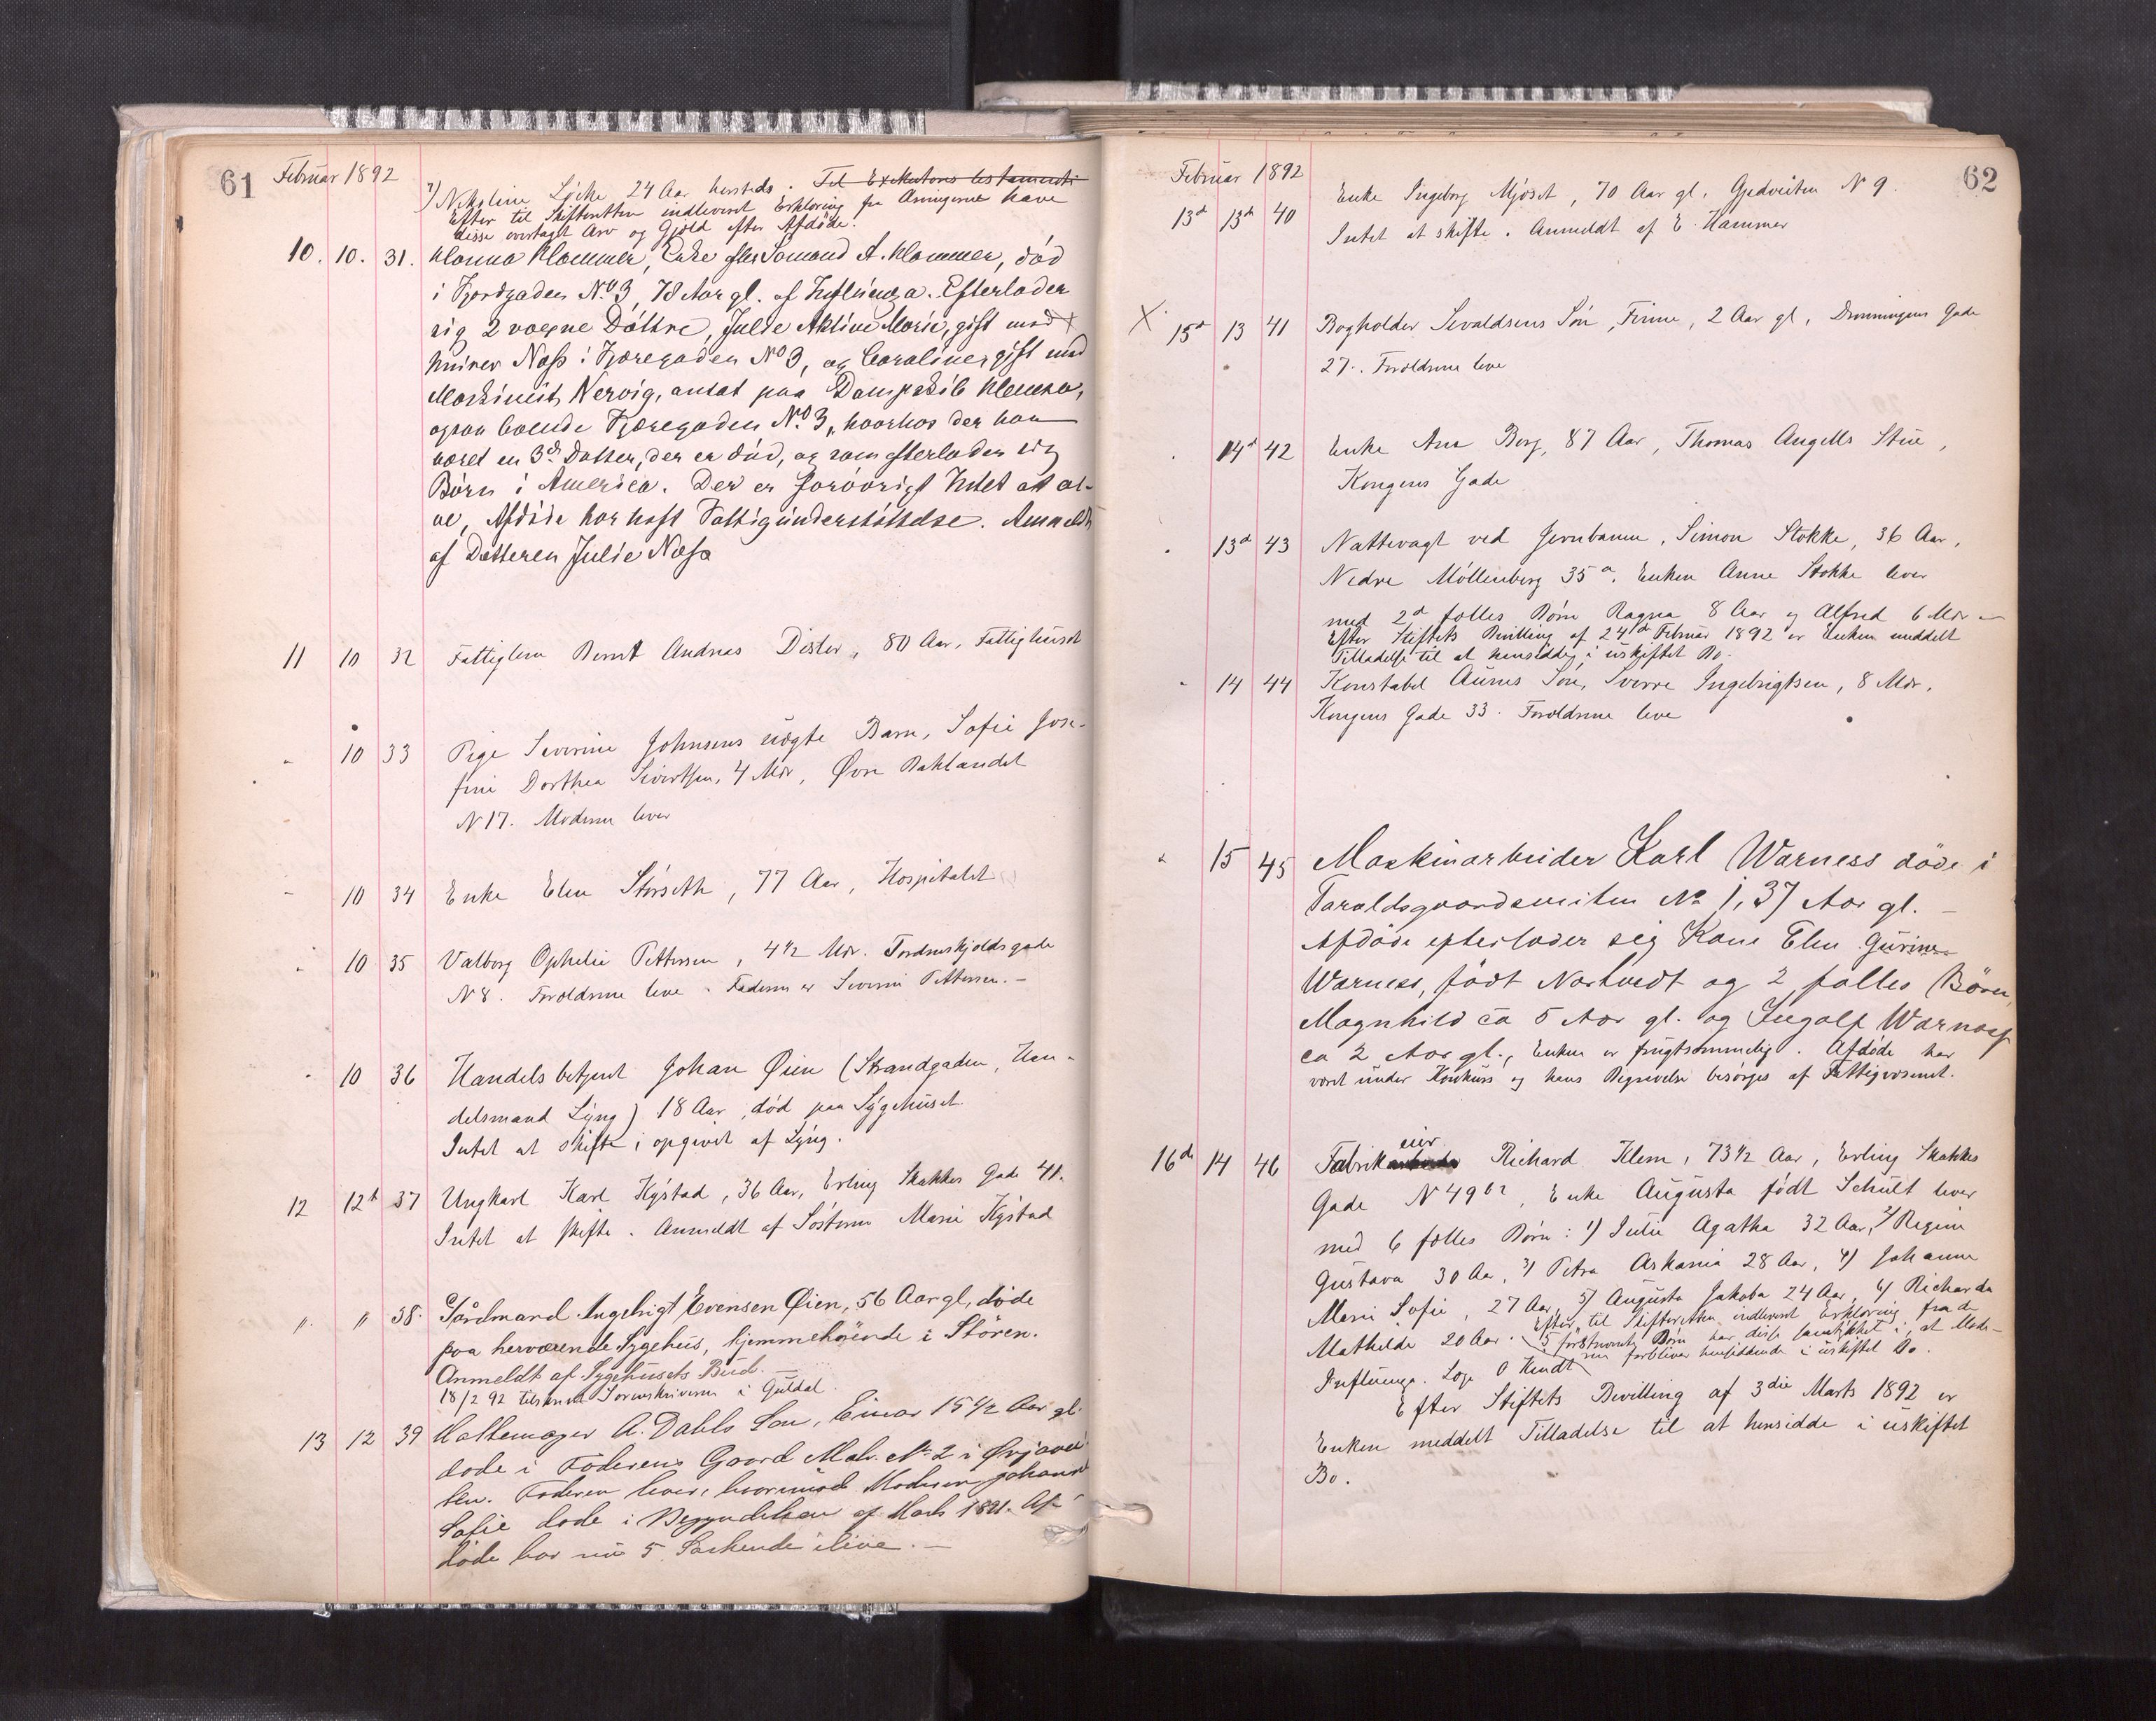 61 Februar 1892
7) Nikoline Lycke 24 Aar hersteds. Til Exekutors testamenti
Efter til Skifteretten indleveret Erklæring fra Arvingerne have
disse overtaget Arv og Gjæld efter Afdöde.
10. 10. 31. Hanna Hammer, Enke efter Sömand A. Hammer, död
i Fjordgaden No 3, 78 Aar gl. af Influenza. Efterlader
sig 2 voxne Döttre, Julie Aktine Marie, gift med
Næss i Fjæregaden No 3, og Caroline, gift med
Maskinist Nervig, ansat paa Dampskib
ogsaa boende Fjæregaden No 3, hvorhos der har
været en 3die Datter, der er död, og som efterlader sig
Börn i America. Der er forövrigt Intet at ar-
ve, Afdöde har havt Fattigunderstöttelse. Anmeldt
af Datteren Julie Næss
11 10 32 Fattiglem Bernt Andreas Dister, 80 Aar, Fattighuset
" 10 33 Pige Severine Johnsens uægte Barn, Sofie Jose-
fine Dorthea Sivertsen, 4 Mdr, Øvre Baklandet
N 17. Moderen lever
" 10 34 Enke Elen Störseth, 77 Aar, Hospitalet
" 10 35 Valborg Ophelie Pettersen, 4½ Mdr. Tordenskjoldsgade
N 8. Forældrene leve. Faderen er Severin Pettersen. -
" 10 36 Handelsbetjent Johan Øien (Strandgaden, Han-
delsmand Lyng) 18 Aar, död paa Sygehuset.
Intet at skifte, opgivet af Lyng.
12 12te 37 Ungkarl Karl Kystad, 36 Aar, Erling Skakkes Gade 41.
Intet at skifte. Anmeldt af Sösteren Marie Kystad
" " 38. Gårdmand Ingebrigt Evensen Øien, 56 Aar gl, döde
paa herværende Sygehus, hjemmehörende i Stören.
Anmeldt af Sygehusets Bud. -
18/2 92 tilskrevet Sorenskriveren i Guldal.
13 12 39 Hattemager A. Dahls Søn, Einar 15½ Aar gl.
døde i Faderens Gaard Matr. No 2 i Ørjavei-
ten. Faderen lever, hvorimod Moderen Johanne
Sofie døde i Begyndelsen af Marts 1891. Af-
døde har nu 5 Søskende ilive. -
Februar 1892 62
13de 13de 40 Enke Ingeborg Mjöset, 70 Aar gl. Gjedveiten N 9.
Intet at skifte. Anmeldt af E. Hammer
X. 15de 13 41 Bogholder Sevaldsens Sön, Finn, 2 Aar gl, Dronningens Gade
27. Forældrene leve
" 14de 42 Enke Ane Berg, 87 Aar, Thomas Angells Stue,
Kongens Gade
" 13de 43 Nattevagt ved Jernbanen, Simon Stokke, 36 Aar,
Nedre Möllenberg 35a. Enken Anne Stokke lever
med 2de fælles Börn Ragna 8 Aar og Alfred 6 Mdr -
Efter Stiftets Bevilling af 24de Februar 1892 er Enken meddelt
Tilladelse til at hensidde i uskiftet Bo.
" 14 44 Konstabel Aunes Sön, Sverre Ingebrigtsen, 8 Mdr,
Kongens Gade 33. Forældrene leve
" 15 45 Maskinarbeider Karl Warness döde i
Taraldsgaardsveiten No 1, 37 Aar gl. -
Afdöde efterlader sig Kone Elen Gurine
Warness, födt Northvedt og 2 fælles Börn,
Magnhild ca 5 Aar gl. og Ingolf Warness
ca 2 Aar gl., Enken er frugtsommelig. Afdöde har
været under Konkurs og hans Begravelse besörges af Fattigvæsenet.
16de 14 46 Fabrikeier Richard Klem, 73½ Aar, Erling Skakkes
Gade N 49b, Enke Augusta födt Schult lever
med 6 fælles Börn: 1) Julie Agatha 32 Aar, 2) Regine
Gustava 30 Aa, 3) Petra Askania 28 Aar, 4) Johanne
Marie Sofie, 27 Aar, 5) Augusta Jakoba 24 Aar, 6) Richarda
Mathilde 20 Aar. Efter til Skifteretten indleveret Erklæring fra de
5 förstnævnte Börn har disse samtykket i, at Mode-
ren forbliver hensiddende i uskiftet Bo.
Influenza. Loge O Kindt
Efter Stiftets Bevilling af 3die Marts 1892 er
Enken meddelt Tilladelse til at hensidde i uskiftet
Bo.